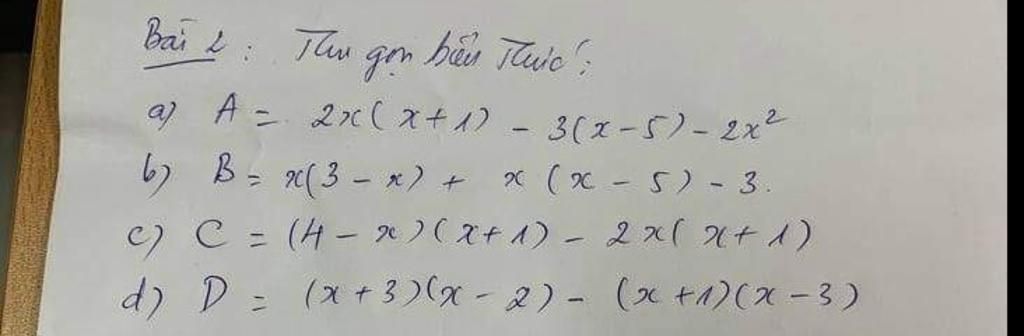 Bài 2 : Thu gọn biểu thức :
a) A = 2x(x+1) - 3(x-5) - 2x²
b) B = x(3-x) + x(x-5) - 3.
c) C = (4-x)(x+1) - 2x(x+1)
d) D = (x+3)(x-2) - (x+1)(x-3)